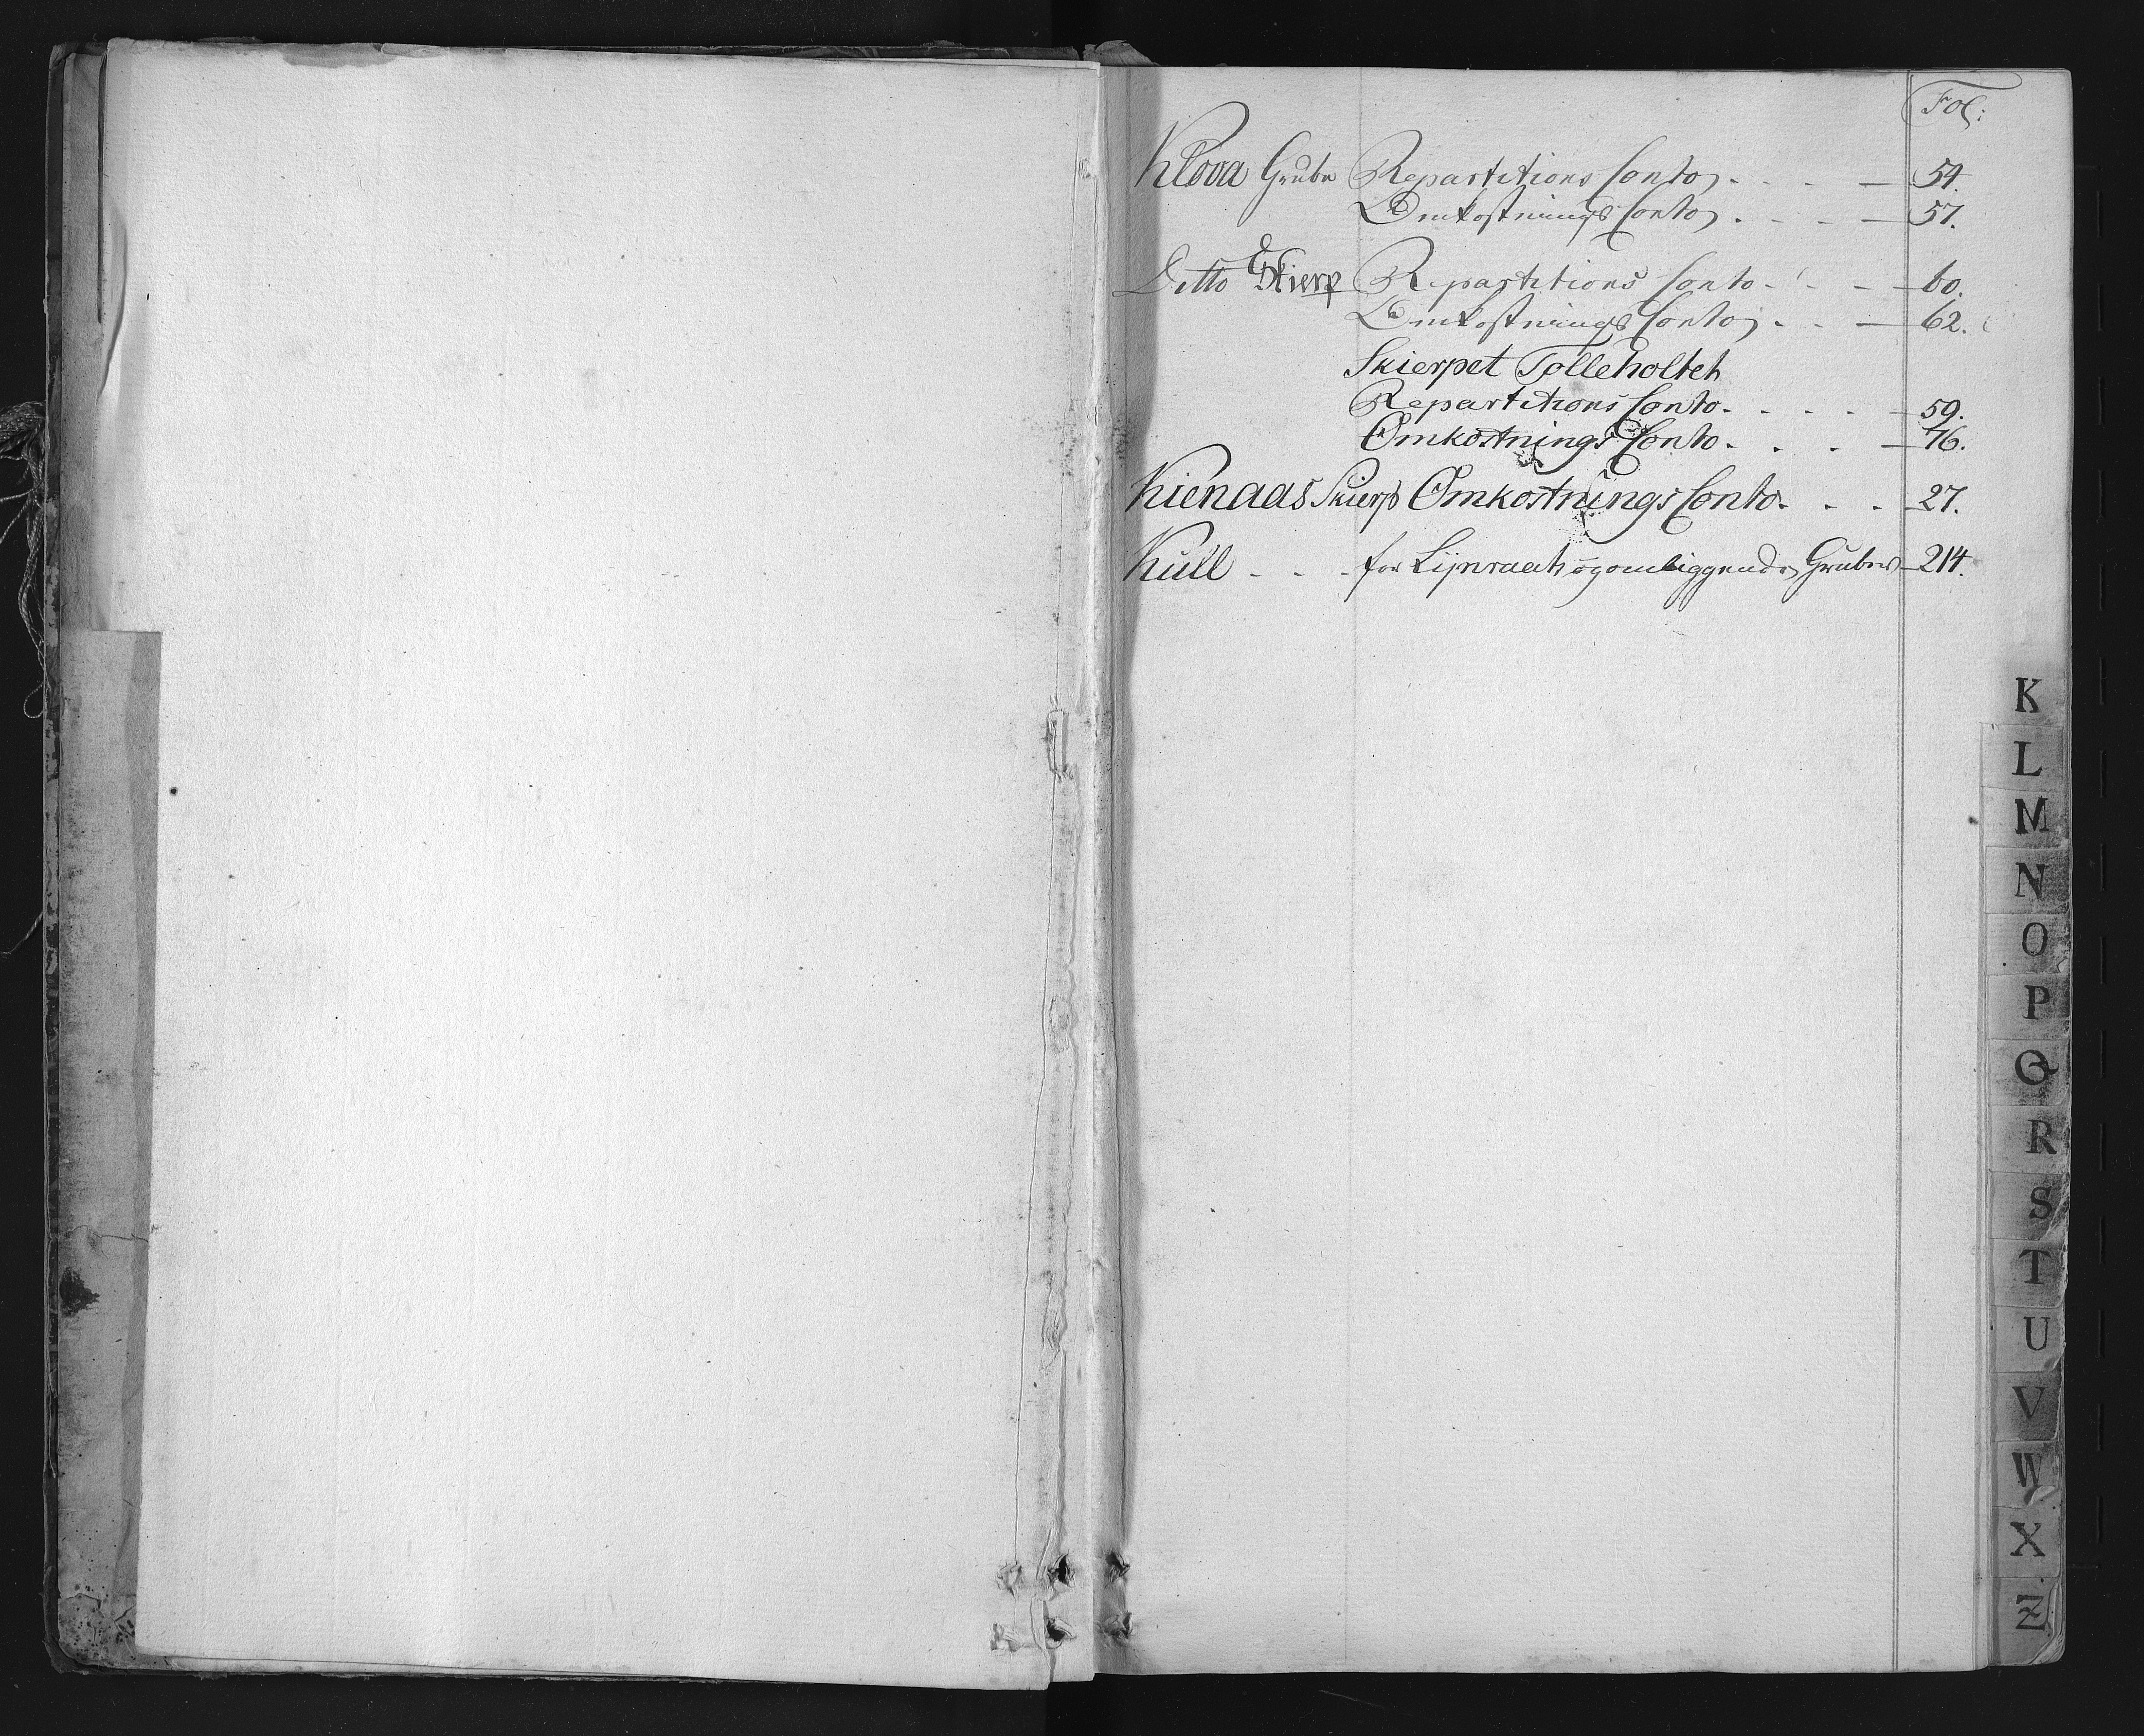 Fol:
Klova Grube Repartitions Conto. - - - 54.
Omkostnings Conto. - - - 57.
Ditto Skierp Repartitions Conto. - - - 60.
Omkostnings Conto. - - - 62.
Skierpet Tolleholtet
Repartitions Conto. . . . - 59.
Omkostnings Conto. . . . - 76.
Kienaas Skierp Omkostnings Conto. . . . 27.
Kull - - - for Lijnraeth og omliggende Gruber - 214.
K
L
M
N
O
P
Q
R
S
T
U
V
W
X
Z